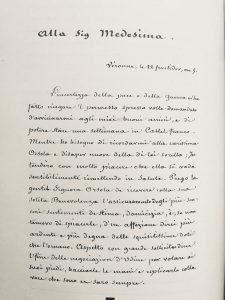 Alla Sig Medesima.
Verona, le 22 fructidor, an 5.
L'incertezza della pace e della guerra m'ha
fatto negare il permesso spesse volte domandato
d'avvicinarmi agli miei buoni amici, e di
potere stare una settimana in Castel franco.
Mentre ho bisogno di ricordarmi alla carissima
Orsola e di saper nuove della di lei
intendere con molto piacere che ella si vada
sensibilmente rimettendo in salute. Prego la
gentile Signora Orsola de ricevere colla sua
solita Benevolenza l'assicurazione degli più sin-
ceri sentimenti di stima, d'amicizia, e, se non
temevo di spiacerle, d'un affezione direi più
ardente e più degna delle squisitissime doti
che l'ornano. Aspetto con grande sollecitudine
l'fine delle negoziazion d'Udine per volare ai
suoi piedi, baciarle le mani e replicarle colla
voce che sono e saro sempre.